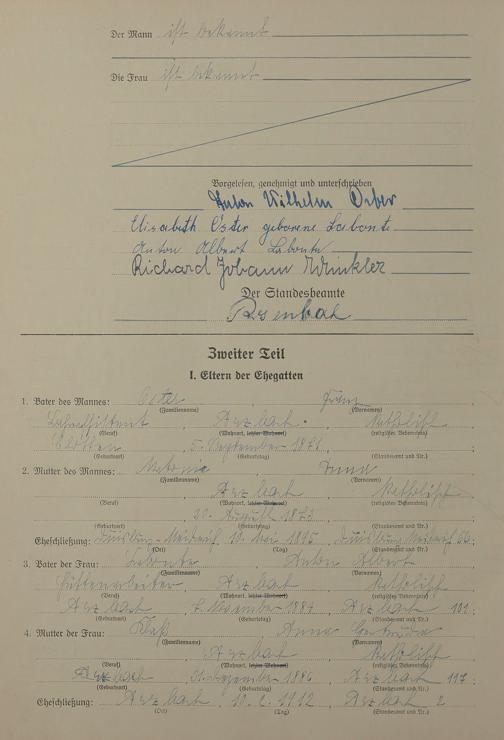 Der Mann ist bekannt
Die Frau ist bekannt
Vorgelesen, genehmigt und unterschrieben
Anton Wilhelm
Elisabeth Oster geborene Labonte
Anton Albert Labonte
Richard Johann Winkler
Der Standesbeamte
Zweiter Teil
I. Eltern der Ehegatten
1. Vater des Mannes: Oster, Franz
(Familienname) (Vornamen)
Arzbach, katholisch
(Beruf) (Wohnort, letzter Wohnort) (religiöses Bekenntnis)
5. September 1871
(Geburtsort) (Geburtstag) (Standesamt und Nr.)
2. Mutter des Mannes: Anna
(Familienname) (Vornamen)
Arzbach, katholisch
(Beruf) (Wohnort, letzter Wohnort) (religiöses Bekenntnis)
20. August 1873
(Geburtsort) (Geburtstag) (Standesamt und Nr.)
Eheschließung: Duisburg-Meiderich, 1895, Duisburg-Meiderich
(Ort) (Tag) (Standesamt und Nr.)
3. Vater der Frau: Labonte, Anton Albert
(Familienname) (Vornamen)
Hüttenarbeiter, Arzbach, katholisch
(Beruf) (Wohnort, letzter Wohnort) (religiöses Bekenntnis)
Arzbach, 7. November 1884, Arzbach 101;
(Geburtsort) (Geburtstag) (Standesamt und Nr.)
4. Mutter der Frau: Anna Gertrude
(Familienname) (Vornamen)
Arzbach, katholisch
(Beruf) (Wohnort, letzter Wohnort) (religiöses Bekenntnis)
Arzbach, Dezember 1886, Arzbach 117;
(Geburtsort) (Geburtstag) (Standesamt und Nr.)
Eheschließung: Arzbach, 10. 2. 1912, Arzbach 2
(Ort) (Tag) (Standesamt und Nr.)